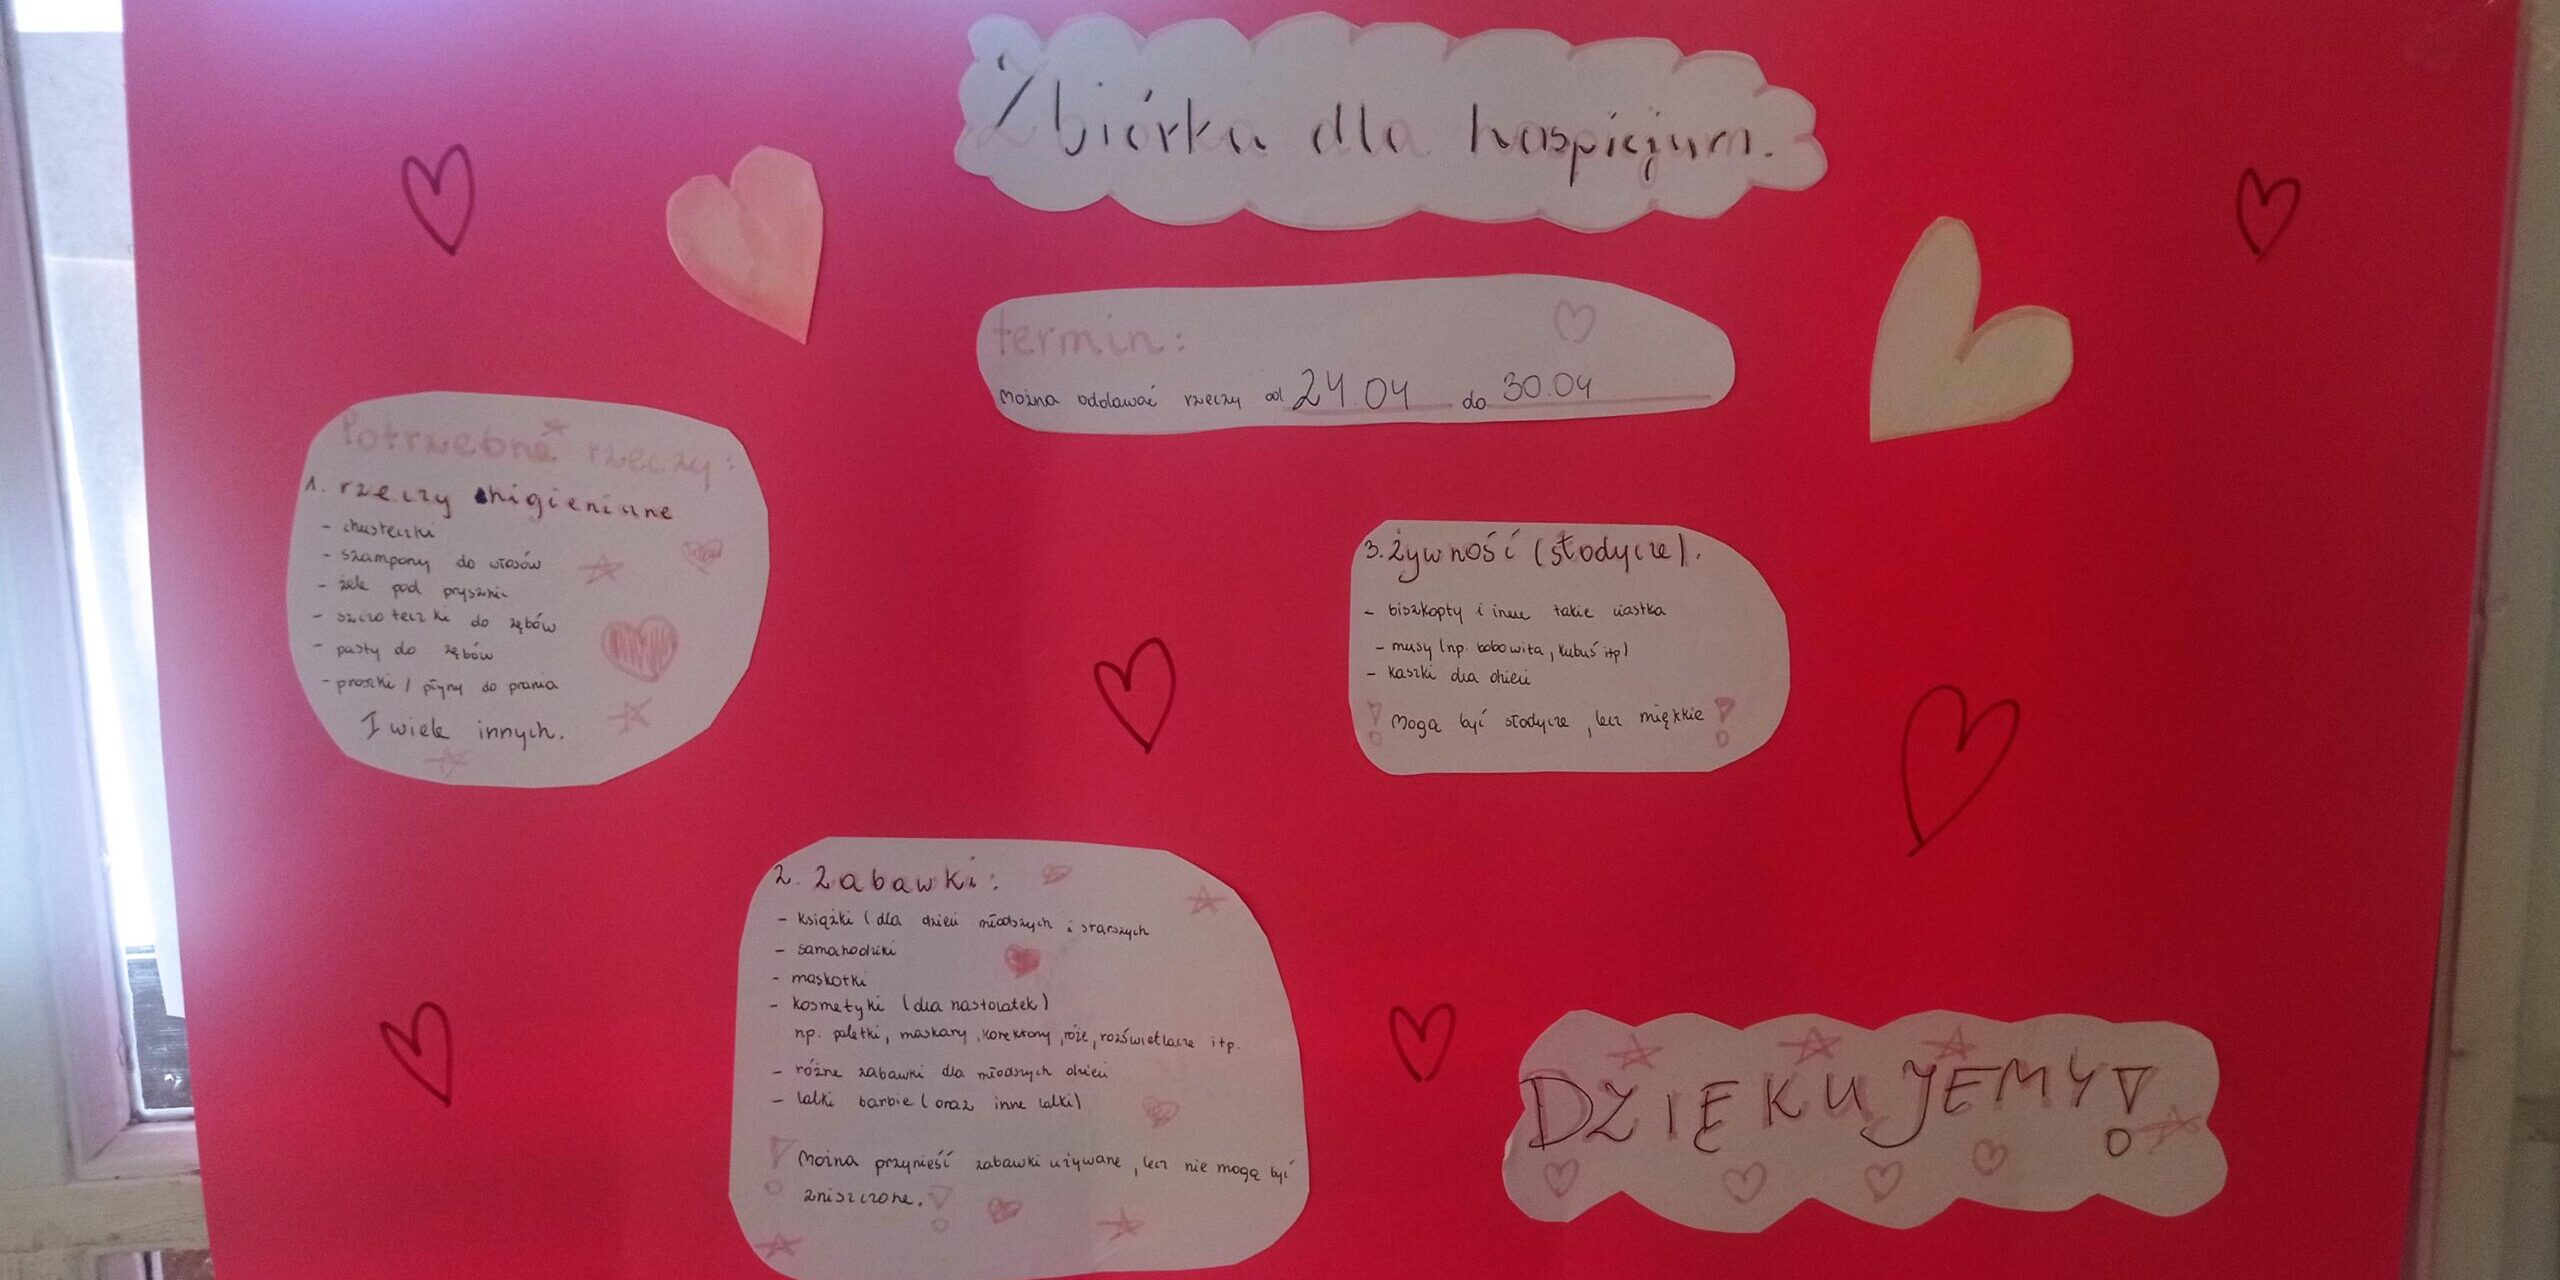 Zbiórka dla hospicjum.
termin:
Można oddawać rzeczy od 24.04 do 30.04
Potrzebne rzeczy:
1. rzeczy higieniczne
- chusteczki
- szampony do włosów
- żele pod prysznic
- szczoteczki do zębów
- pasty do zębów
- proszki / płyny do prania
I wiele innych.
3. Żywność (słodycze).
- biszkopty i inne takie ciastka
- musy (np. bobowita, kubuś itp)
- kaszki dla dzieci
! Mogą być słodycze, lecz miękkie !
2. Zabawki:
- książki (dla dzieci młodszych i starszych
- samochodziki
- maskotki
- kosmetyki (dla nastolatek)
np. paletki, maskary, korektory, róże, rozświetlacze itp.
- różne zabawki dla młodszych dzieci
- lalki barbie (oraz inne lalki)
! Można przynieść zabawki używane, lecz nie mogą być
zniszczone. !
DZIĘKUJEMY!